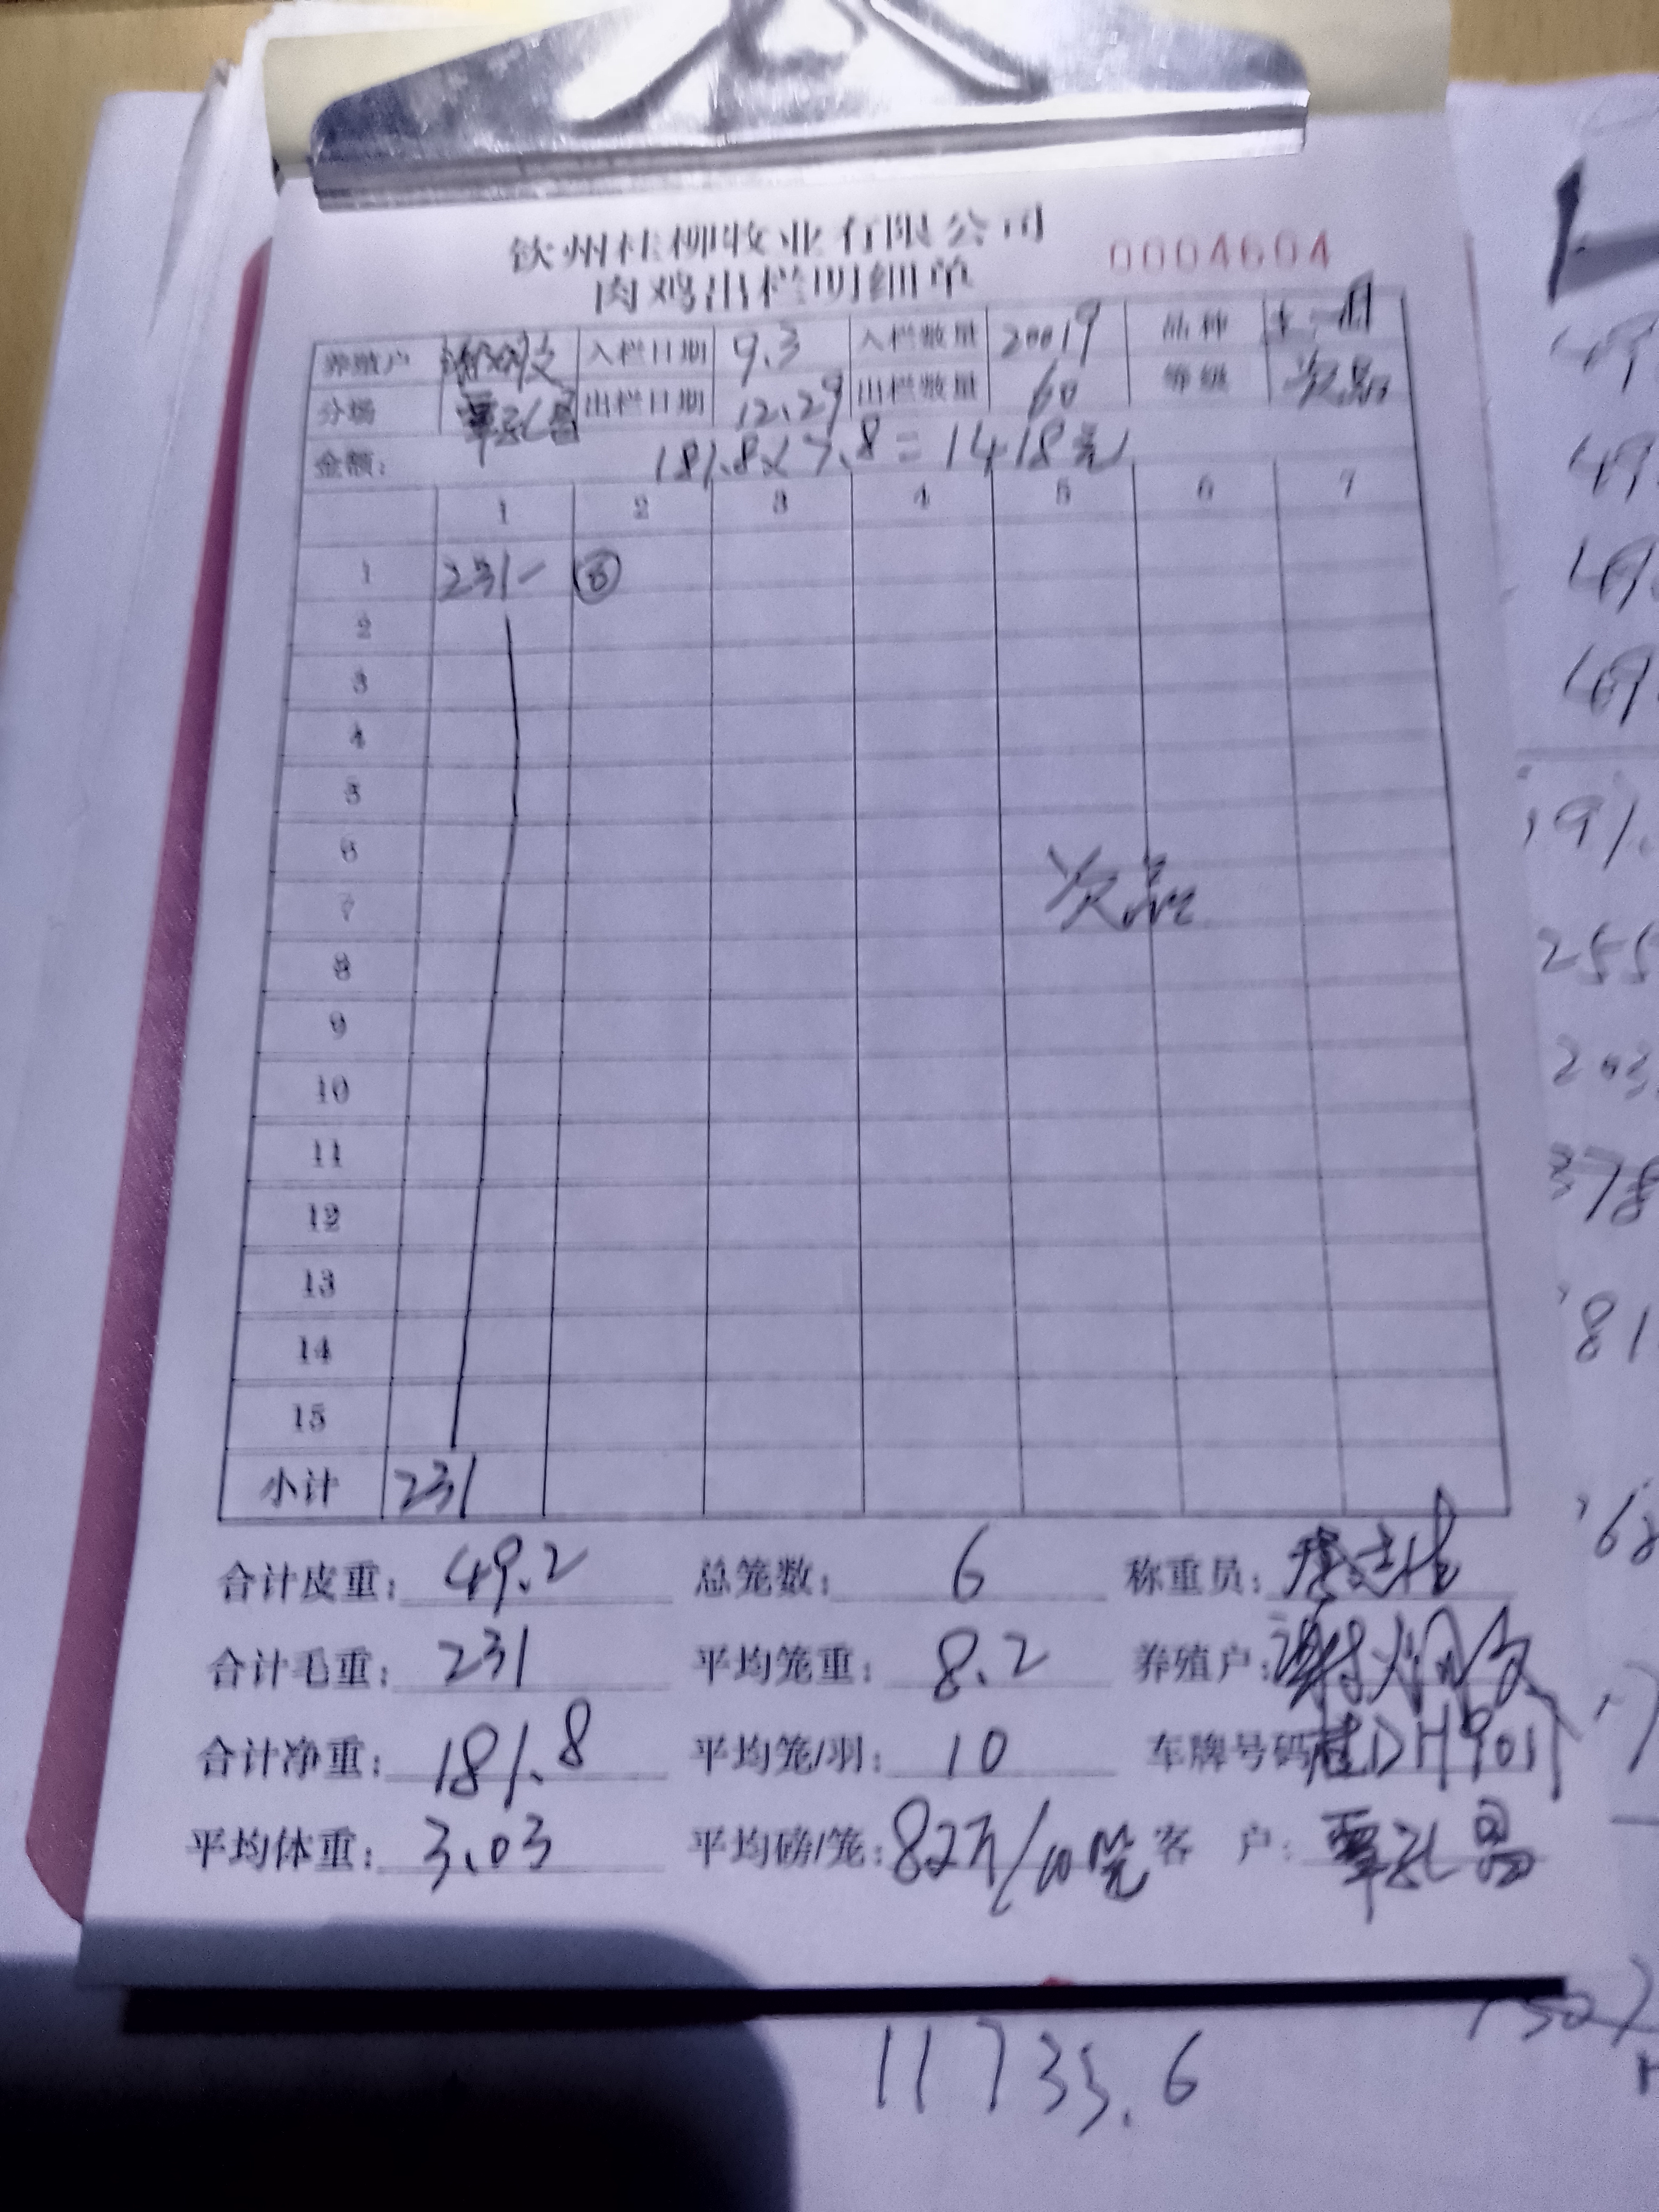 钦州桂柳牧业有限公司
肉鸡出栏明细单 0004604
养殖户 入栏日期 9.3 入栏数量 20019 品种
分场 覃孔昌 出栏日期 12.29 出栏数量 60 等级 次品
金额: 181.8×7.8=1418元
1 2 3 4 5 6 7
1 231 ⑥
2
3
4
5
6
7 次品
8
9
10
11
12
13
14
15
小计 231
合计皮重: 49.2 总笼数: 6 称重员:
合计毛重: 231 平均笼重: 8.2 养殖户:
合计净重: 181.8 平均笼/羽: 10 车牌号码 桂DH9011
平均体重: 3.03 平均磅/笼: 82斤/10笼 客 户: 覃孔昌
11733.6
255
78
81